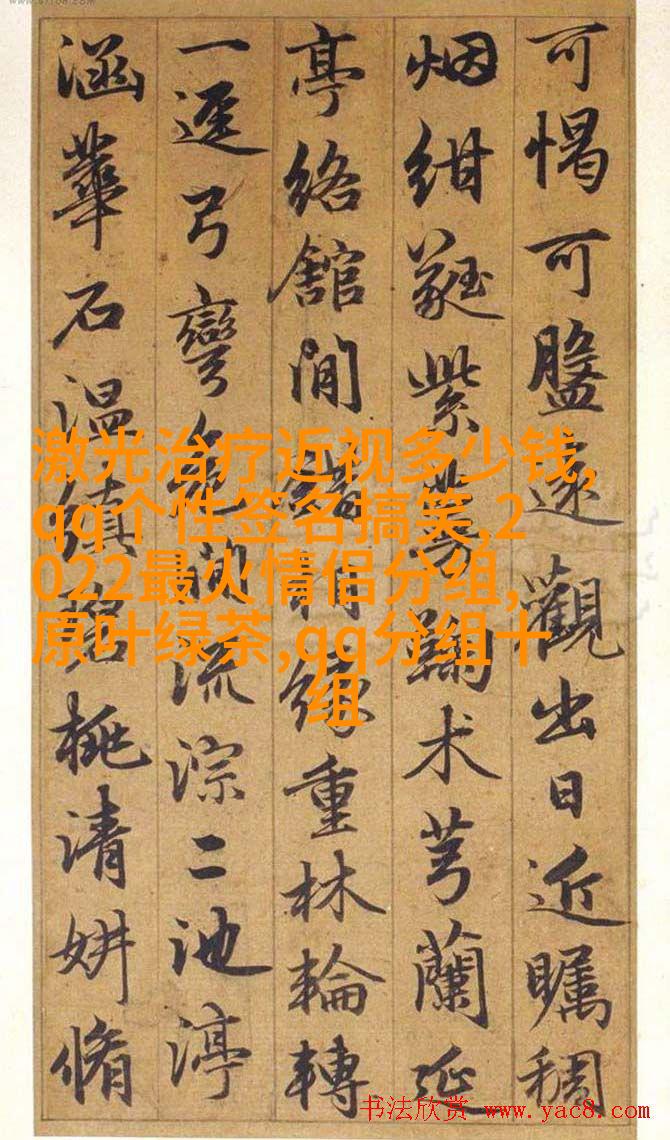 可愒可盤逐觀出日近矚稠
烟紺蕤紫术芎蘭延
亭絡館閒緣重林輪轉
一逕弓彎流淙二池渟
涵華石温縝桃清妍脩
激光治疗近视多少钱,
qq个性签名搞笑,2
022最火情侣分组,
原叶绿茶,qq分组十
组
书法欣赏 www.yac8.com